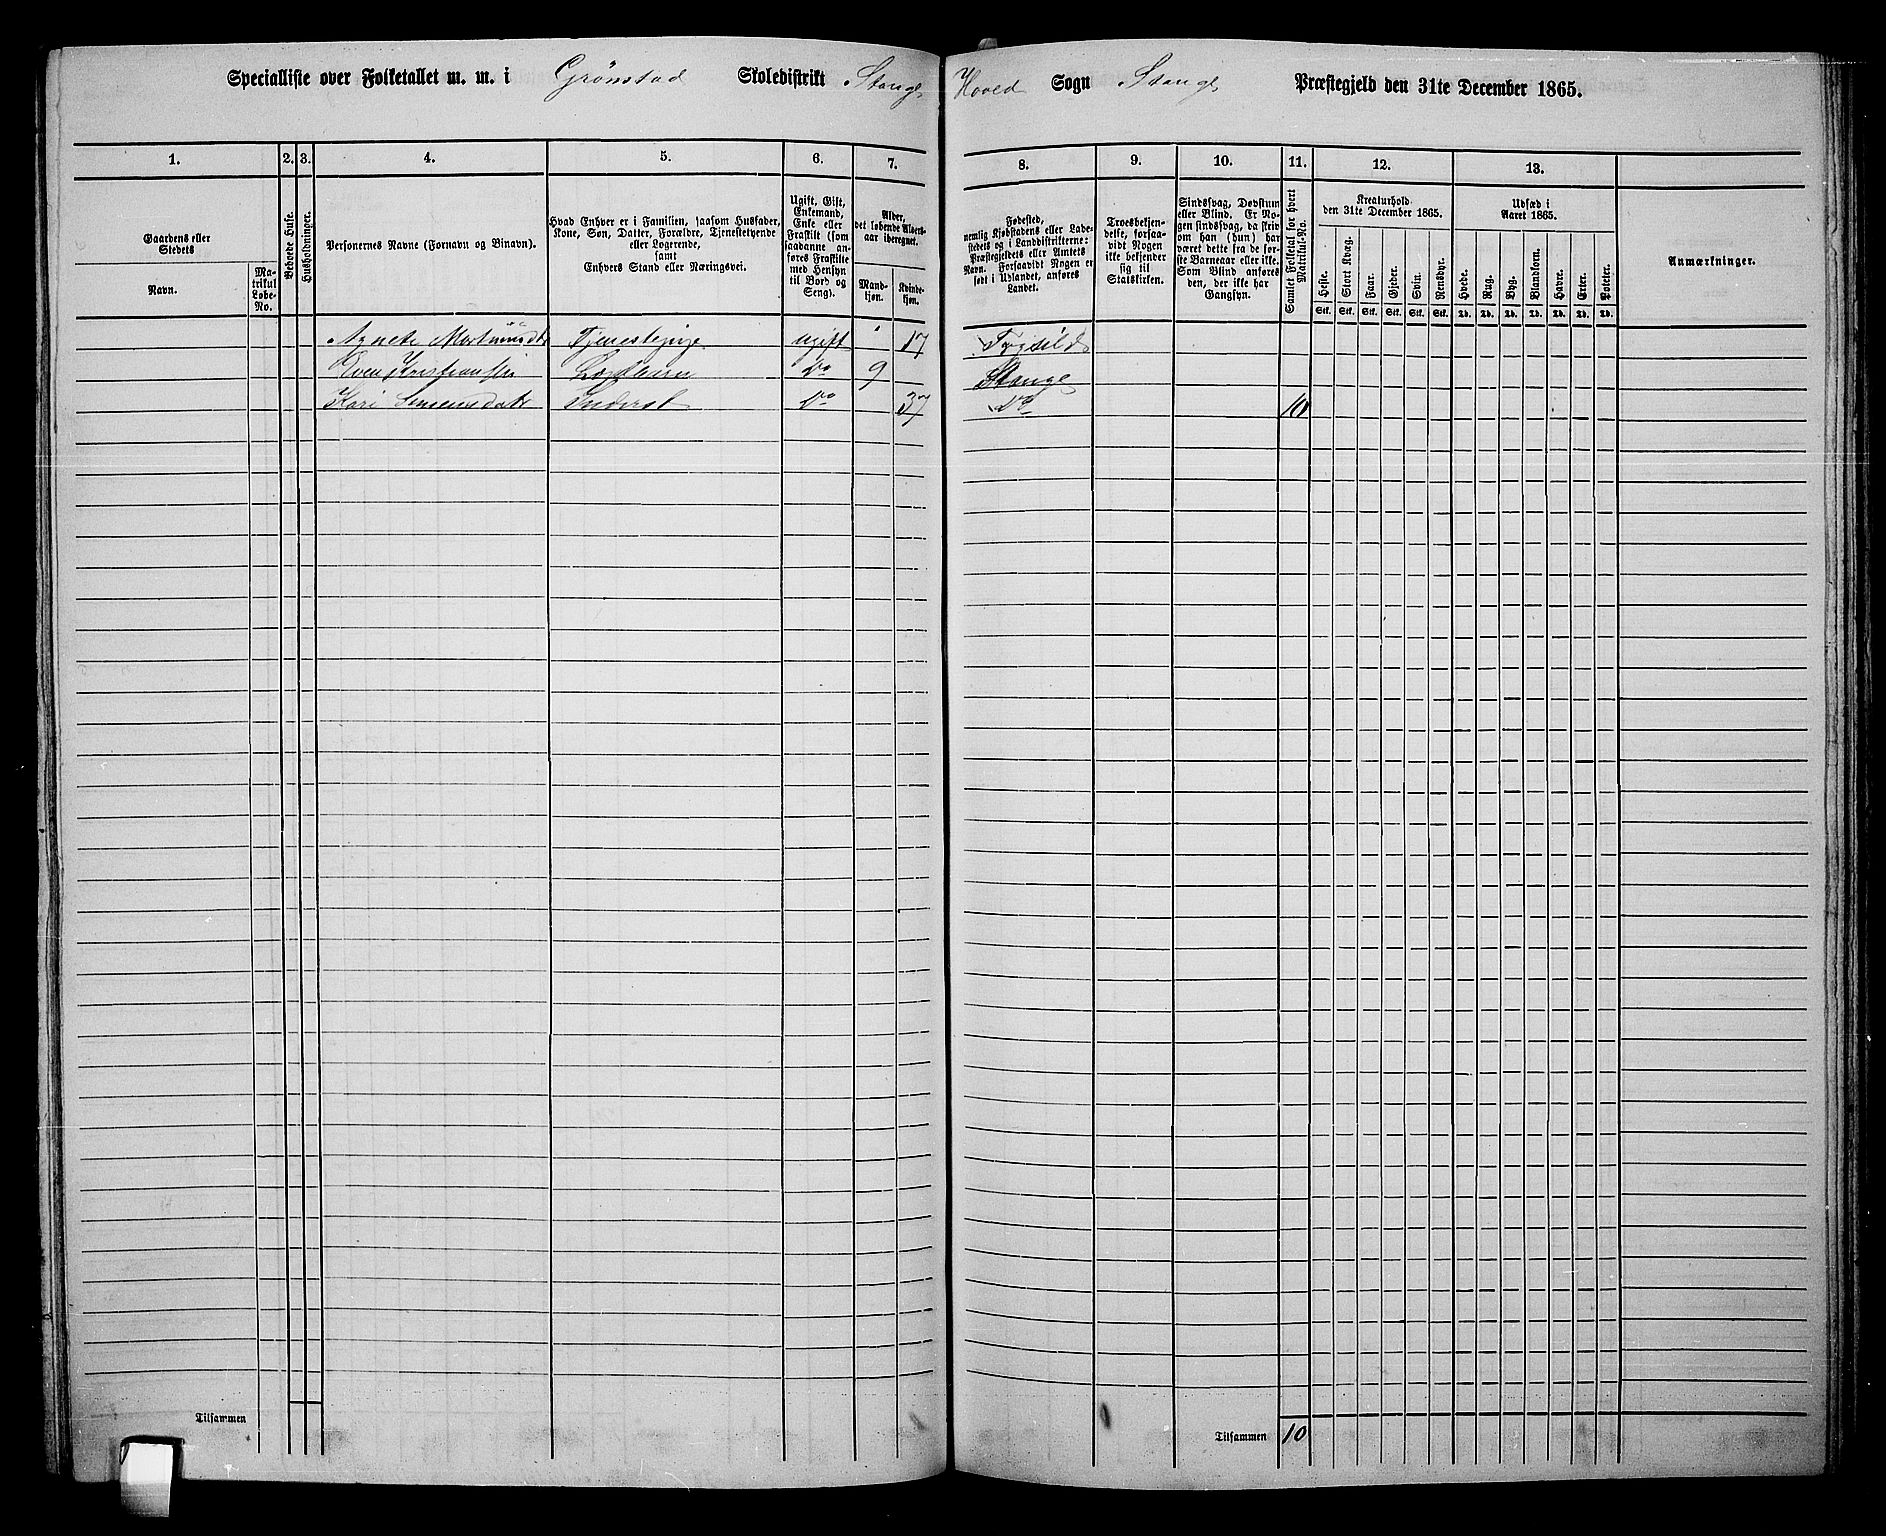 Specialliste over Folketallet m. m. i Grönstad Skoledistrikt Stange Hoved Sogn Stange Præstegjeld den 31te December 1865.
1. 2. 3. 4. 5. 6. 7. 8. 9. 10. 11. 12. 13.
Gaardens eller Stedets
Navn.
Matrikul Løbe-No.
Beboede Huse.
Husholdninger.
Personernes Navne (Fornavn og Binavn).
Hvad Enhver er i Familien, saasom Husfader, Kone, Søn, Datter, Forældre, Tjenestetyende eller Logerende, samt Enhvers Stand eller Næringsvei.
Ugift, Gift, Enkemand, Enke eller Fraskilt (som saadanne anføres Fraskilte med Hensyn til Bord og Seng).
Alder, det løbende Alders-aar iberegnet.
Mand-kjøn.
Kvinde-kjøn.
Fødested, nemlig Kjøbstadens eller Ladestedets og i Landdistrikterne: Præstegjeldets eller Amtets Navn. Forsaavidt Nogen er født i Udlandet, anføres Landet.
Troesbekjendelse, forsaavidt Nogen ikke bekjender sig til Statskirken.
Sindssvag, Døvstum eller Blind. Er Nogen sindssvag, da skriv om han (hun) har været dette fra de første Barneaar eller ikke. Som Blind anføres den, der ikke har Gangsyn.
Samlet Folketal for hvert Matrikul-No.
Kreaturhold den 31te December 1865.
Heste. Stort Kvæg. Faar. Gjeder. Svin. Rensdyr.
Stk. Stk. Stk. Stk. Stk. Stk.
Udsæd i Aaret 1865.
Hvede. Rug. Byg. Blandkorn. Havre. Erter. Poteter.
Td. Td. Td. Td. Td. Td. Td.
Anmærkninger.
Agnete Tjenestepige ugift 17
Kristiansen Do 9 Stange
Kari Inderst Do 37 Do 10
Tilsammen
Tilsammen 10